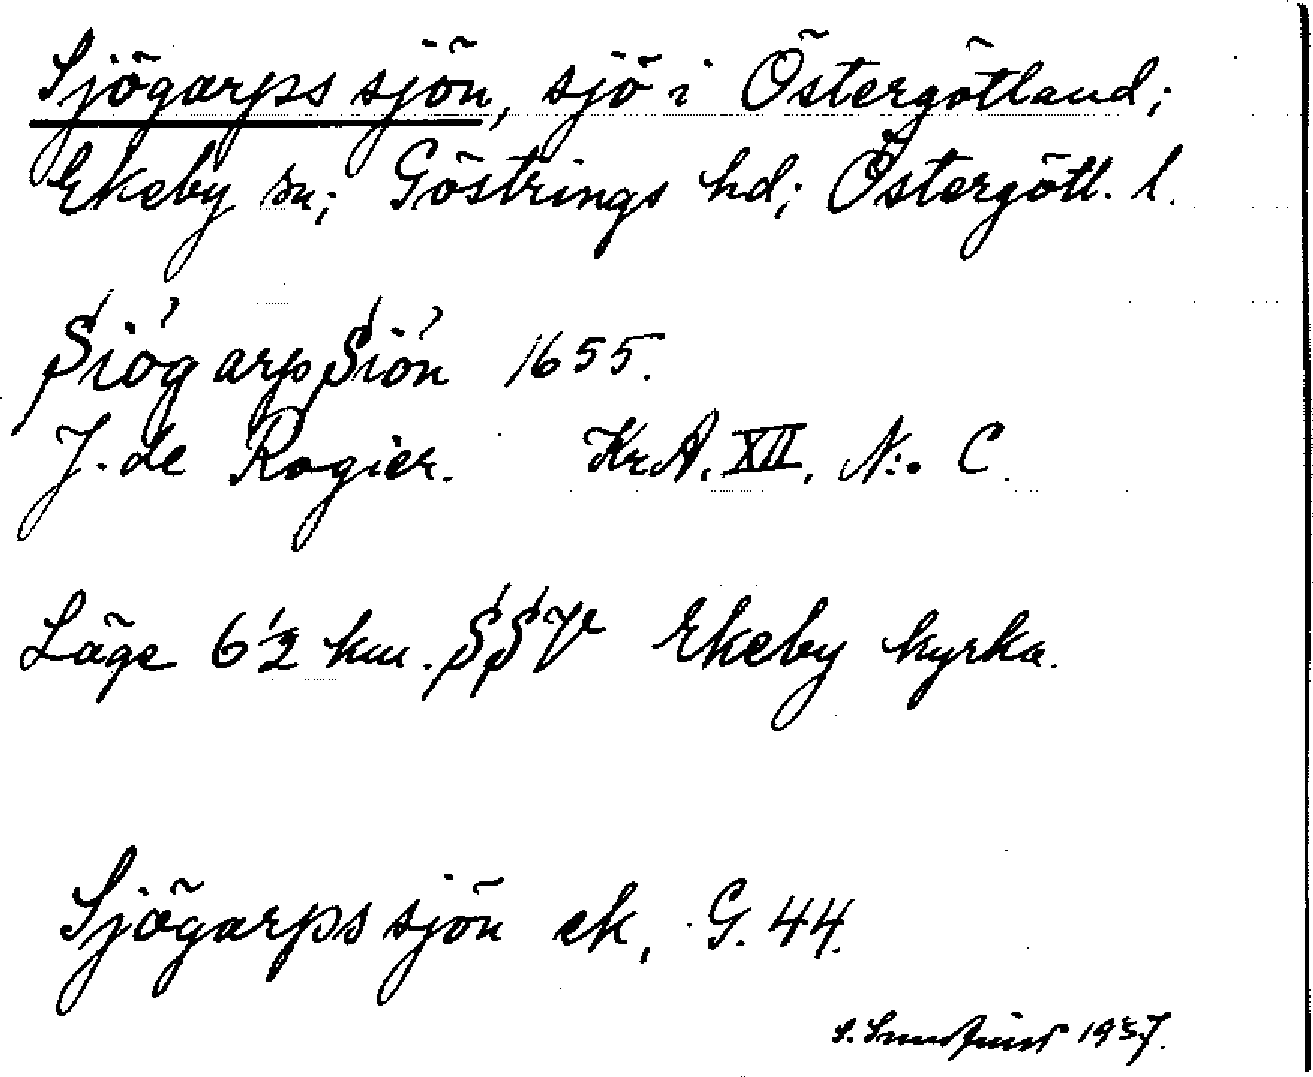 Sjögarps sjön, sjö i Östergötland;
Ekeby sn; Göstrings hd; Östergötl. l.
Siögarp Siön 1655.
J. de Rogier. KrA. XII. N:o C.
Läge 6½ km. SSV Ekeby kyrka.
Sjögarps sjön ek, G. 44.
S. 1937.